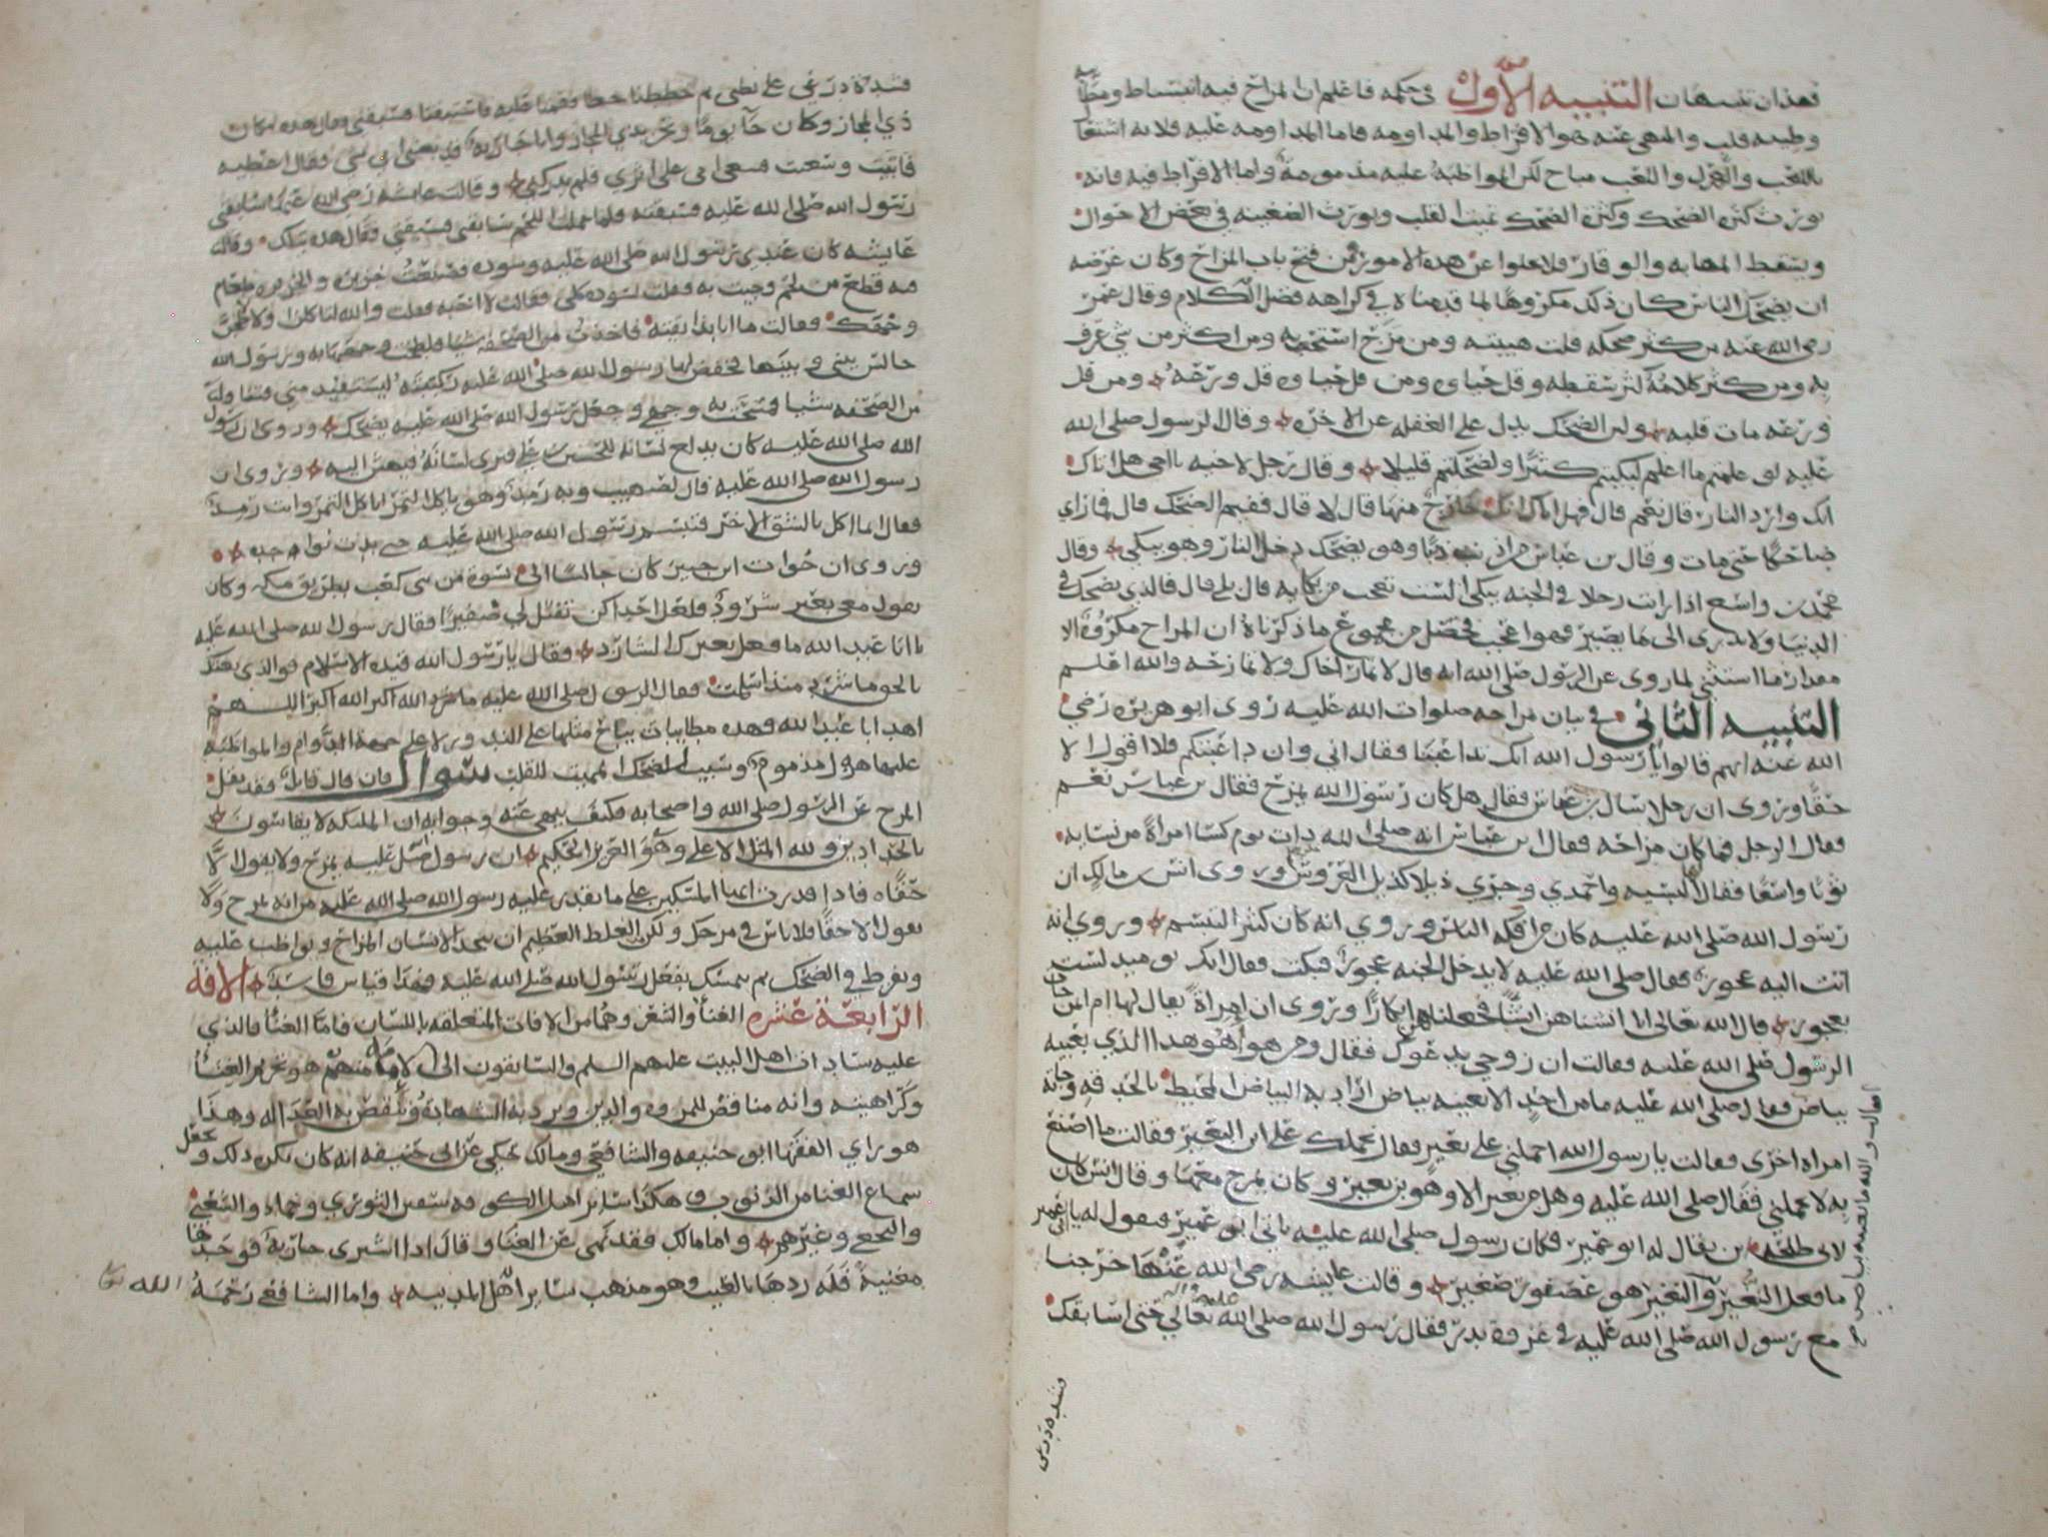 فهذان تنبيهان التنبيه الأول في حكمه فاعلم ان المزاح فيه انبساط
وطيبه قلب والمنهي عنه هو الافراط والمداومه فاما المداومه عليه فلانه اشتغال
باللعب والهزل واللعب مباح لكن المواظبة عليه مذمومة واما الافراط فيه فانه
يورث كثرة الضحك وكثرة الضحك تميت القلب ويورث الضغينه في بعض الاحوال
ويسقط المهابه والوقار فلا يخلوا عن هذه الامور فمن فتح باب المزاح وكان غرضه
ان يضحك الناس كان ذلك مكروها لما قدمناه في كراهه فضل الكلام وقال عمر
رضي الله عنه من كثر ضحكه قلت هيبته ومن مزح استخف به ومن اكثر من شي عرف
به ومن كثر كلامه كثر سقطه وقل حياوه ومن قل حياوه قل ورعه ومن قل
ورعه مات قلبه ولان الضحك يدل على الغفله عن الاخره وقال الرسول صلى الله
عليه لو علمتم ما اعلم لبكيتم كثيرا ولضحكتم قليلا وقال رجل لاخيه يااخي هل اتاك
انك وارد النار قال نعم قال فهل اتاك انك خارج منها قال لا قال ففيم الضحك قال فما راي
ضاحكا حتى مات وقال بن عباس من اذنب ذنبا وهو يضحك دخل النار وهو يبكي وقال
محمد بن واسع اذا رايت رجلا في الجنه يبكي الست تعجب من بكايه قال بلى قال فالذي يضحك في
الدنيا ولا يدري الى ما يصير فهو اعجب فحصل من مجموع ما ذكرناه ان المزاح مكروه الا
مقدار ما استثني لما روى عن الرسول صلى الله انه قال لا تمار اخاك ولا تمازحه والله اعلم
التنبيه الثاني في بيان مزاحه صلوات الله عليه روى ابو هريره رضي
الله عنه انهم قالوا يا رسول الله انك تداعبنا فقال اني وان داعبتكم فلا اقول الا
حقا وروى ان رجلا سال بن عباس فقال هل كان رسول الله يمزح فقال بن عباس نعم
فقال الرجل فما كان مزاحه فقال ابن عباس انه صلى الله ذات يوم كسا امراة من نسايه
ثوبا واسعا فقال البسيه واحمدي وجري ذيلا كذيل العروس وروى انس مالك ان
رسول الله صلى الله عليه كان من افكه الناس وروي انه كان كثير التبسم وروي انه
اتت اليه عجوز فقال صلى الله عليه لا يدخل الجنه عجوز فبكت فقال انك يوميد لست
بعجوز قال الله تعالى انا انشاناهن انشا فجعلناهن ابكارا وروى ان امراة يقال لها ام ايمن جات
الرسول صلى الله عليه فقالت ان زوجي يدعوك فقال ومن هو اهو هذا الذي بعينه
بياض فقال صلى الله عليه ما من احد الا بعينه بياض اراد به البياض المحيط بالحدقه وجاته
امراه اخرى فقالت يا رسول الله احملني على بعير فقال نحملك على ابن البعير فقالت ما اصنع
به لا يحملني فقال صلى الله عليه وهل من بعير الا وهو بن بعير وكان يمزح معها وقال انس كان
لابي طلحه بن يقال له ابو عمير وكان رسول صلى الله عليه ياتي ابو عمير فيقول له يا ابا عمير
ما فعل النغير والنغير هو عصفور صغير وقالت عايشه رضي الله عنها خرجنا
مع رسول الله صلى الله عليه في غزوة بدر فقال رسول الله صلى الله تعالي حتى اسابقك
فشددة درعي على بطني ثم خططنا خطا فقمنا عليه فاستبقنا فسبقني وقال هذه مكان
ذي المجاز وكان جا يوما ونحن بذي المجاز وانا جارية قد بعثني ابي بشي فقال اعطنيه
فابيت وسعت فسعى على اثري فلم يدركني وقالت عايشه رضي الله عنها سابقني
رسول الله صلى الله عليه فسبقته فلما حملت اللحم سابقني فسبقني فقال هذه بتلك وقالت
عايشه كان عندي رسول الله صلى الله عليه وسوده فصنعت
وجيت به فقلت لسوده كلي فقالت لا احبه فقلت والله لتاكلن او لالطخن
وجهك فقالت ما انا بذايقته فاخذت من الصحفه شيا فلطخت وجهها به ورسول الله
جالس بيني وبينها فخفض لها رسول الله صلى الله عليه ركبتيه لتستقيد مني فتناولت
من الصحفه شيا فمسحت به وجهي وجعل رسول الله صلى الله عليه يضحك وروى ان رسول
الله صلى الله عليه كان يدلع لسانه للحسين بن علي فيرى لسانه فيهش اليه وروى ان
رسول الله صلى الله عليه قال لصهيب وبه رمد وهو ياكل التمر اتاكل التمر وانت رمد
فقال انما اكل بالشق الاخر فتبسم رسول الله صلى الله عليه حتى بدت نواجده
وروى ان خوات ابن جبير كان جالسا الى نسوة من بني كعب بطريق مكه وكان
يقول معي بعير شرود فلعل احداكن تفتل لي ضفيرا فقال رسول الله صلى الله عليه
يا ابا عبد الله ما فعل بعيرك الشارد فقال يا رسول الله قيده الاسلام فوالذي بعثك
بالحق ما شرد منذ اسلمت فقال الرسول صلى الله عليه الله اكبر الله اكبر اللهم
اهد ابا عبد الله وهذه مطايبات يباح مثلها على الندور لا على جهة الدوام والمواظبه
عليها هزل مذموم وسبب الضحك المميت للقلب سوال فان قال قايل فقد نقل
المزح عن الرسول صلى الله واصحابه فكيف ينهى عنه وجوابه ان الملايكه لا يقاسون
بالحدادين ولله المثل الاعلى وهو العزيز الحكيم ان رسول صلى عليه يمزح ولا يقول الا
حقا فاذا قدرت ايها المسكين على ما يقدر عليه رسول الله صلى الله عليه من انه يمزح ولا
يقول الا حقا فلا باس في مزحك ولكن الغلط العظيم ان يتخذ الانسان المزاح ويواظب عليه
ويفرط في الضحك ثم يتمسك بفعل رسول الله صلى الله عليه فهذا قياس فاسد الافة
الرابعة عشره الغنا والشعر وهما من الافات المتعلقه باللسان فاما الغنا فالذي
عليه سادات اهل البيت عليهم السلم والسابقون الى الامامه منهم هو تحريم الغنا
وكراهيته وانه مناقض للمروه والدين ويرد به الشهادة وتنقض به العداله وهذا
هو راي الفقها ابو حنيفه والشافعي ومالك يحكى عن ابي حنيفه انه كان يكره ذلك ويجعل
سماع الغنا من الذنوب وهكذا ساير اهل الكوفه سفين الثوري وحماد والشعبي
والنخعي وغيرهم واما مالك فقد نهى عن الغنا وقال اذا اشترى جارية فوجدها
مغنية فله ردها بالعيب وهو مذهب ساير اهل المدينه واما الشافعي رحمه الله
فشددة درعي